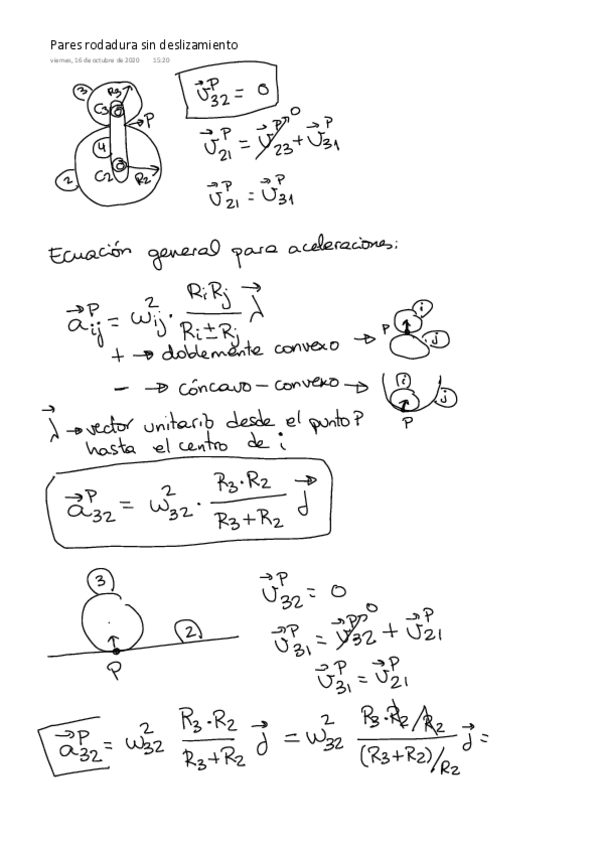 Pares rodadura sin deslizamiento
viernes, 16 de octubre de 2020 15:20
3 R3 C3 P 4 C2 R2 2
v⃗ᴾ₃₂ = 0
v⃗ᴾ₂₁ = v⃗ᴾ₂₃ ↗ 0 + v⃗ᴾ₃₁
v⃗ᴾ₂₁ = v⃗ᴾ₃₁
Ecuación general para aceleraciones:
a⃗ᴾij = ω²ij · RiRj / (Ri ± Rj) λ⃗
+ → doblemente convexo → P i j
− → cóncavo - convexo → i j P
λ⃗ → vector unitario desde el punto P
hasta el centro de i
a⃗ᴾ₃₂ = ω²₃₂ · R3·R2 / (R3+R2) j⃗
3 2 P
v⃗ᴾ₃₂ = 0
v⃗ᴾ₃₁ = v⃗ᴾ₃₂ ↗ 0 + v⃗ᴾ₂₁
v⃗ᴾ₃₁ = v⃗ᴾ₂₁
a⃗ᴾ₃₂ = ω²₃₂ R3·R2 / (R3+R2) j⃗ = ω²₃₂ (R3·R2/R2) / ((R3+R2)/R2) j⃗ =